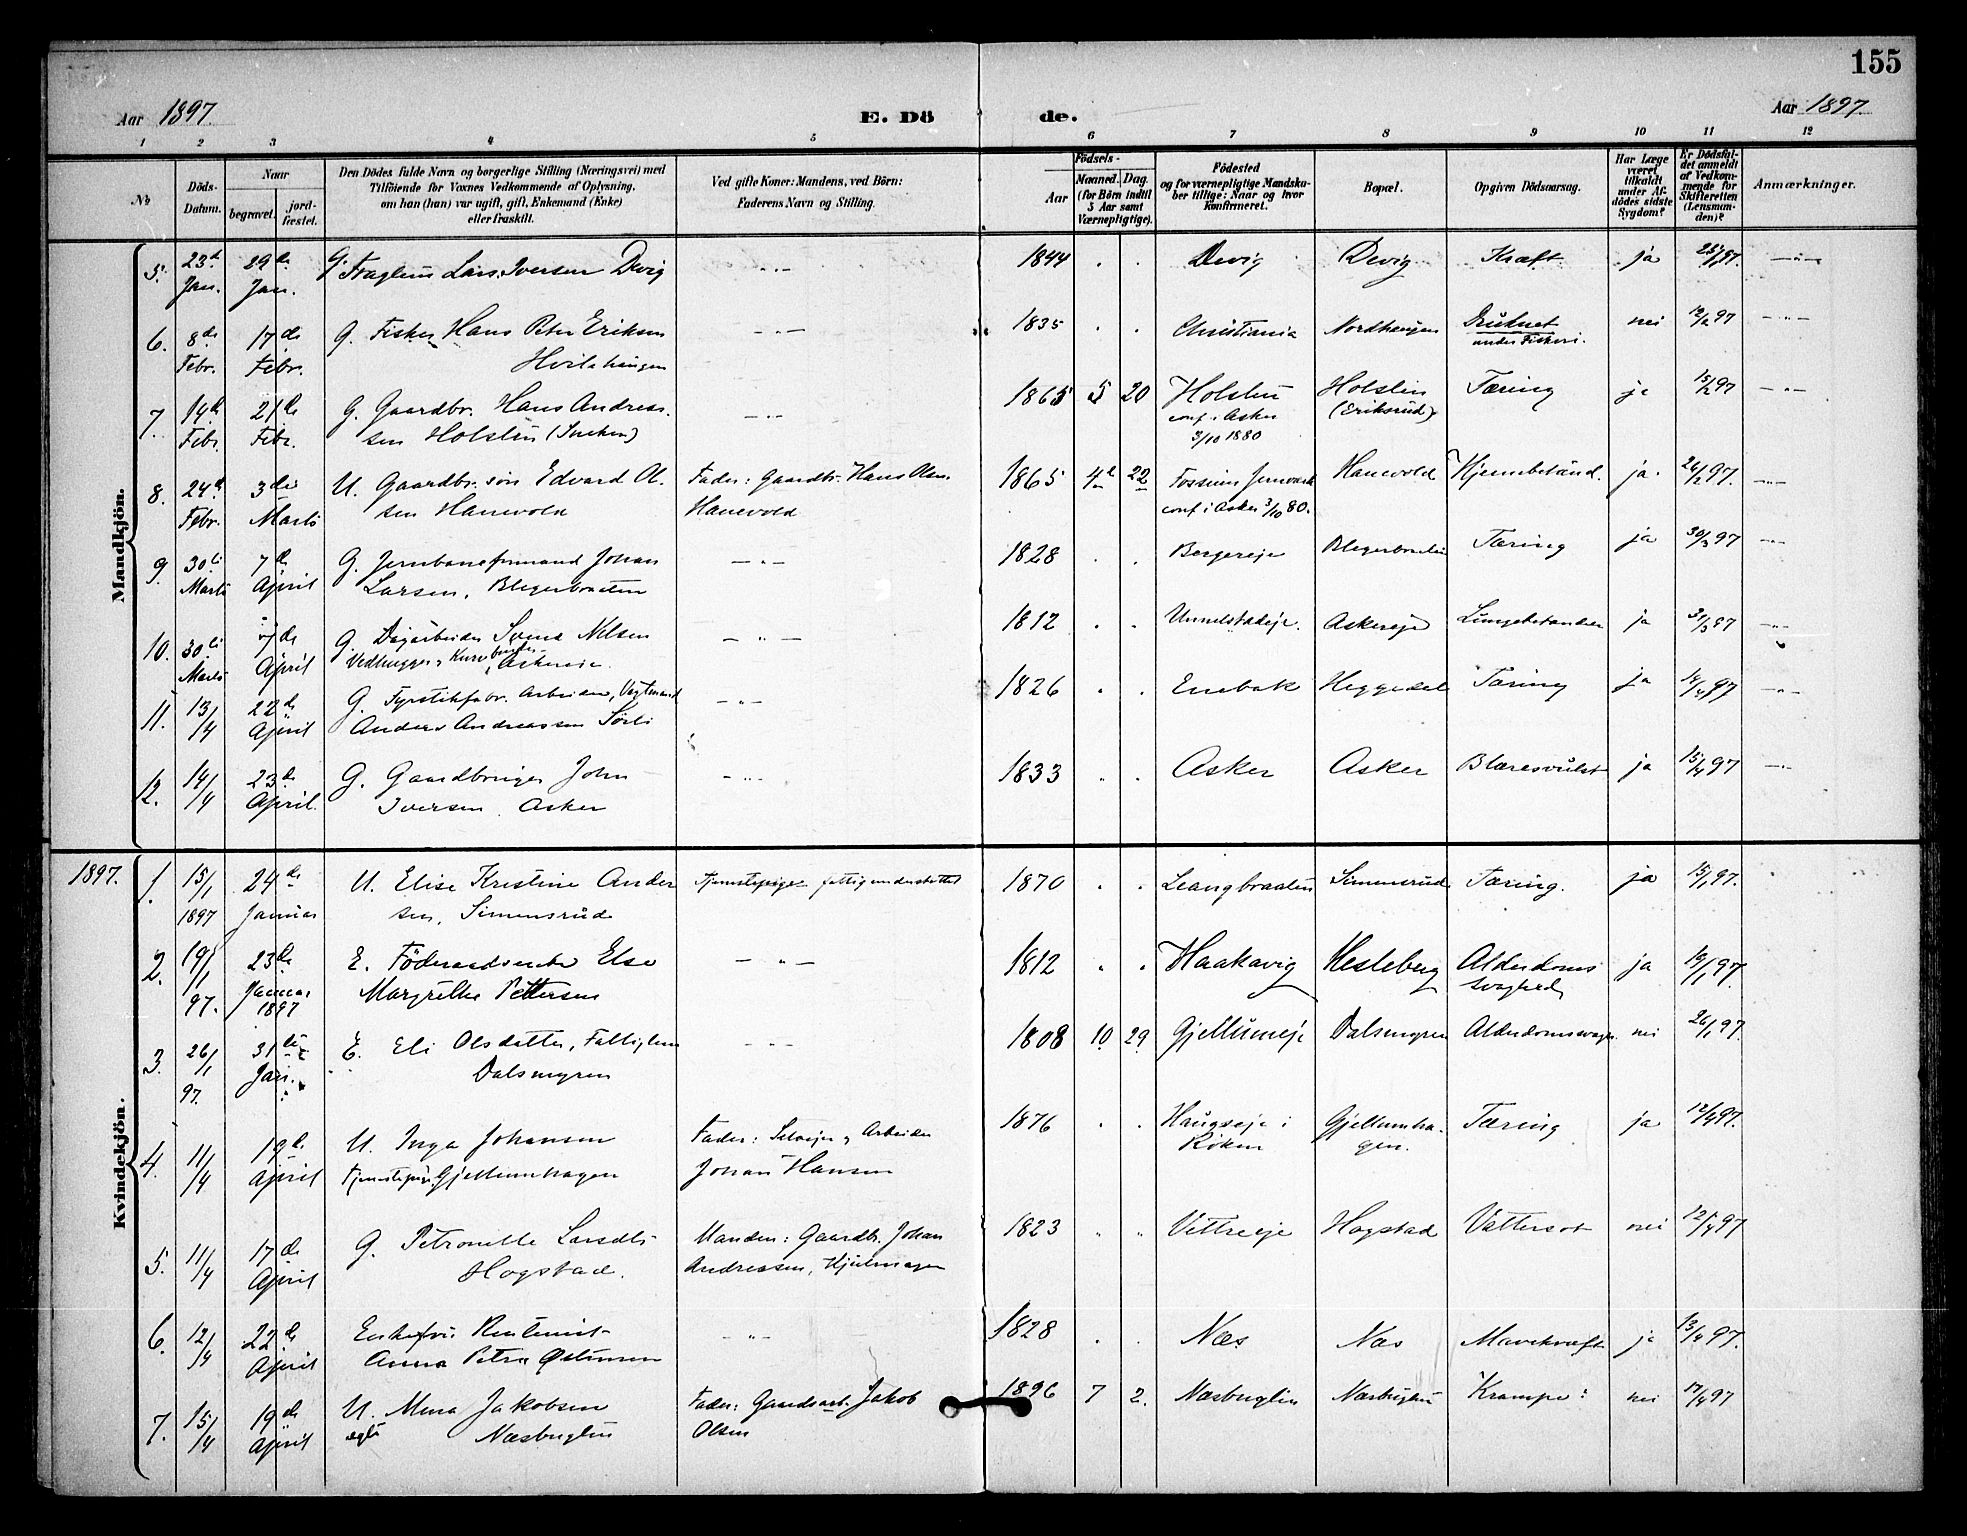 155
Aar 1897.
E. Dö de.
Aar 1897.
1 2 3 4 5 6 7 8 9 10 11 12
No
Döds-Datum.
Naar
begravet.
jord-fæstet.
Den Dödes fulde Navn og borgerlige Stilling (Næringsvei) med
Tilföiende for Voxnes Vedkommende af Oplysning,
om han (hun) var ugift, gift, Enkemand (Enke)
eller fraskilt.
Ved gifte Koner: Mandens, ved Börn:
Faderens Navn og Stilling.
Födsels-
Aar
Maaned. Dag.
(for Börn indtil
5 Aar samt
Værnepligtige).
Födested
og for værnepligtige Mandska-
ber tillige: Naar og hvor
konfirmeret.
Bopæl.
Opgiven Dödsaarsag.
Har Læge
været
tilkaldt
under Af-
dödes sidste
Sygdom?
Er Dödsfal-
det anmeldt
af Vedkom-
mende for
Skifteretten
(Lensman-
den)?
Anmærkninger.
Mandkjön.
5. 23d Jan. 29de Jan. G. Lars Iversen Devig — " — 1844 . . Devig Devig Kræft ja — " —
6. 8de Febr. 17de Febr. G. Fisker Hans Peter Eriksen — " — 1835 . . Christiania Druknet under Fiskeri. nei 12/2 97 — " —
7. 14de Febr. 21de Febr. G. Gaardbr. Hans Andreas-
sen Holslin — " — 1865 5 20 Holslin conf. i Asker 3/10 1880 Holslin (Eriksrud) Tæring ja 15/2 97 — " —
8. 24de Febr. 3die Marts U. Gaardbr. sön Edvard Ol-
sen Hanevold Fader: Gaardbr. Hans Olsen
Hanevold 1865 4de 22 Fossum Jernværk conf. i Asker 3/10 80. Hanevold Hjernebetænd. ja. 26/2 97. — " —
9. 30te Marts 7de April G. Jernbaneformand Johan
Larsen, Blegerbraaten — " — 1828 . . Bergereje Blegerbraaten Tæring ja 30/3 97 — " —
10. 30te Marts 7de April G. Dagarbeider Svend Nilsen
Vedhugger, Askereie. — " — 1812 . . Askereje ja 31/3 97 — " —
11. 13/4 22de April G. Fyrstikfabr. Arbeider,
Anders Andreassen — " — 1826 . . Enebak Heggedal Tæring ja 14/4 97 — " —
12. 14/4 23de April. G. Gaardbruger John
Iversen Asker — " — 1833 . . Asker Asker Blæresvulst ja 15/4 97 — " —
Kvindekjön.
1897.
1. 15/1 1897 24de Januar U. Elise Kristine Ander
sen, Simensrud Tjenestepige fattigunderstöttet 1870 . . Leangbraaten Simensrud Tæring. ja 15/1 97.
2. 19/1 97. 23de Januar 1897 E. Föderaadsenke Else
Margrethe Pettersen — " — 1812 . . Haakavig Hesleberg Alderdoms svaghed ja 19/1 97.
3. 26/1 97. 31te Jan. E. Eli Olsdatter, Fattiglem
Dalsmyren — " — 1808 10 29 Gjellumeje Dalsmyren Alderdomssvagh. nei 26/1 97.
4. 11/4 19de April U. Inga Johansen
Tjenestepige Gjellumhagen Fader: Selveier, Arbeider
Johan Hansen 1876 . . Haugseje i Röken Gjellumha-
gen. Tæring ja 12/4 97.
5. 11/4 17de April G. Petronelle Larsdtr
Hogstad. Manden: Gaardbr. Johan
Andreassen, Hjulmager 1823 " " Vettreeje Hogstad Vattersot nei 12/4 97
6. 12/4 22de April Enkefru Rentenist
Anna Petra — " — 1828 . . Næs Næs Mavekræft ja 13/4 97.
7. 15/4 19de April U. ægte Mena Jakobsen
Næsbuglen Fader: Gaardsarb. Jakob
Olsen 1896 7 2. Næsbuglen Næsbuglen Krampe nei 17/4 97